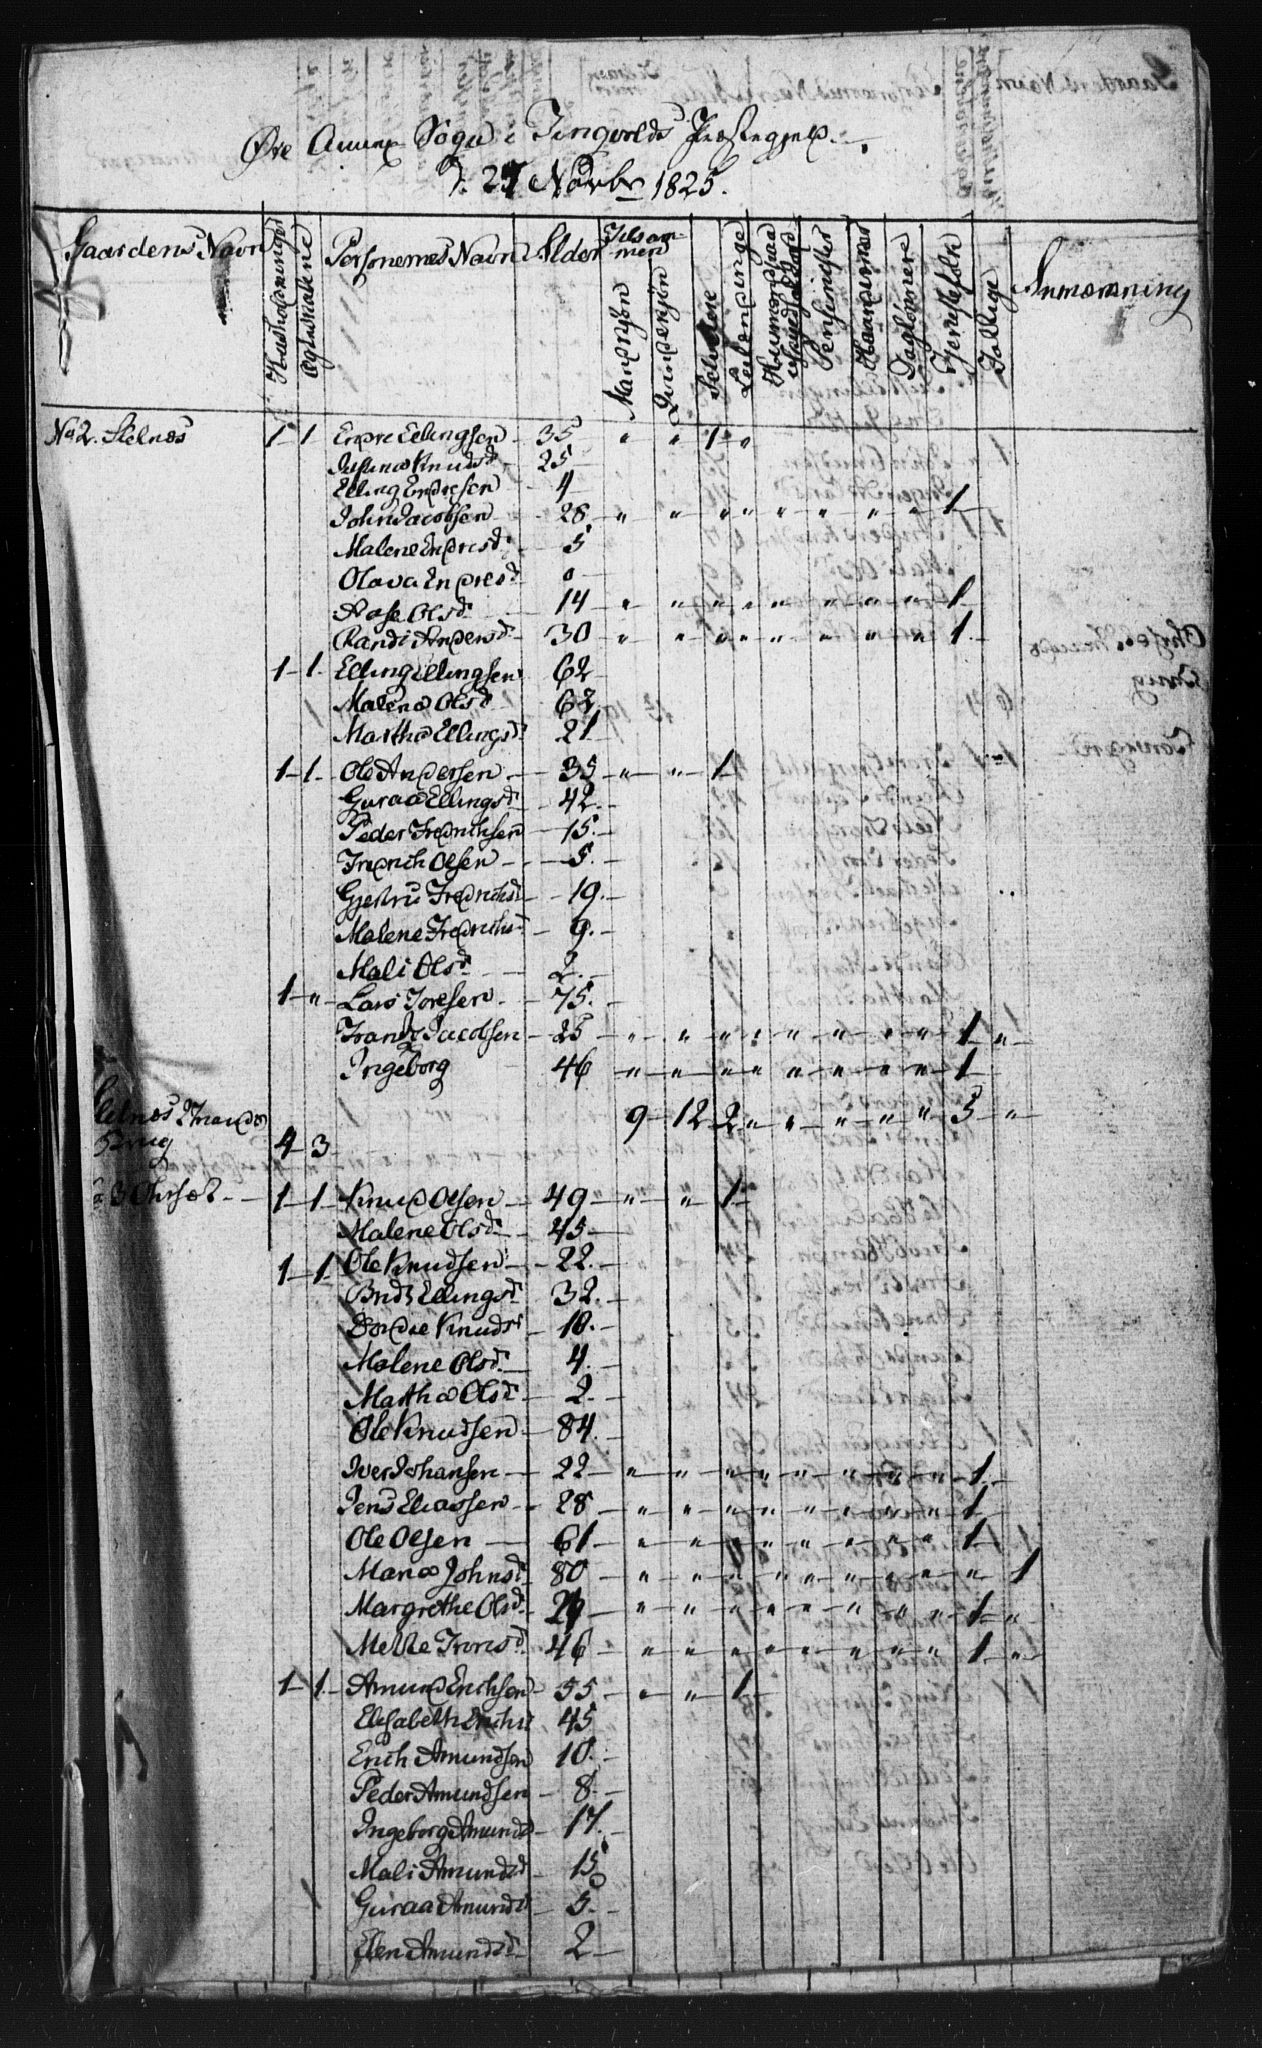 Øre Annex Sogn i Tingvolds Præstegjeld.
d. 27 Novbr 1825.
Gaardens Navn Huusholdninger Ægteskabene Personernes Navn Alder Tilsammen Mandkjøn Qvindekjøn Selveiere Leilændinge Huusmænd Pensionister Haandværker Daglønnere Tjenestefolk Fattige Anmærkning
No 2. Stelnes 1 1 Endre Ellingsen 35 " " 1 "
Knudsd. 25
Elling Endresen 4
John Jacobsen 28 " " " " " " " " 1
Malene Endresd. 5
Olava Endresd. 0
Aase Olsd. 14 " " " " " " " " 1
Randi Andersd. 30 " " " " " " " " 1
1 1 Elling Ellingsen 62
Malene Olsd. 62
Martha Ellingsd. 21
1 1 Ole Andersen 35 " " 1
Guraa Ellingsd. 42
Peder Fredrichsen 15
Fredrich Olsen 5
Gjertru Fredrichsd. 19
Malene Fredrichsd. 9
Mali Olsd. 2
1 " Lars Toresen 75
Jacobsen 25 " " " " " " " " 1 "
Ingeborg 46 " " " " " " " " 1
9 12 2 " " " " " 5 "
Brug 4 3
3 Ohrsæt 1 1 Knud Olsen 49 " " 1
Malene Olsd. 45
1 1 Ole Knudsen 22
Brit Ellingsd. 32
Dordie Knudsd. 18
Malene Olsd. 4
Martha Olsd. 2
Ole Knudsen 84
Iver Johansen 22 " " " " " " " " 1
Jens Eliassen 28 " " " " " " " " 1
Ole Olsen 61 " " " " " " " " 1
Johnsd. 80 " " " " " " " " " 1
Margrethe Olsd. " " " " " " " " 1 "
Mette Tronsd. 46 " " " " " " " " 1 "
1 1 Amund Erichsen 55 " " 1
Elisabeth Erichsd. 45
Erich Amundsen 10
Peder Amundsen 8
Ingeborg Amundsd. 17
Mali Amundsd. 15
Guraa Amundsd. 5
Ellen Amundsd. 2